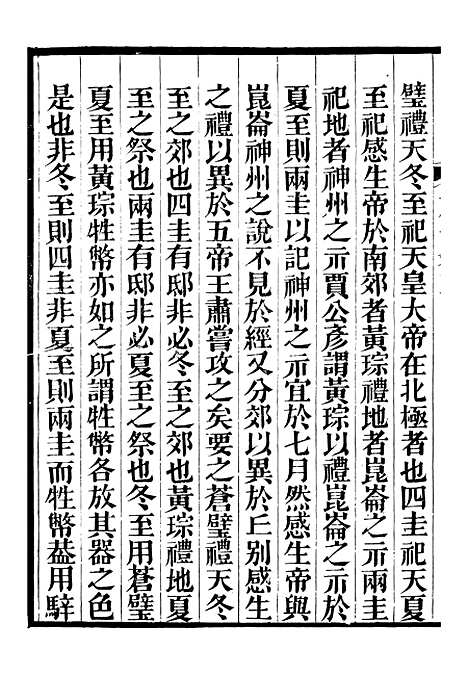 璧禮天冬至祀天皇大帝在北極者也四圭祀天夏
至祀感生帝於南郊者黃琮禮地者崑崙之示兩圭
祀地者神州之示賈公彥謂黃琮以禮崑崙之示於
夏至則兩圭以記神州之示宜於七月然感生帝與
崑崙神州之說不見於經又分郊以異於丘別感生
之禮以異於五帝王肅嘗攻之矣要之蒼璧禮天冬
至之郊也四圭有邸非必冬至之郊也黃琮禮地夏
至之祭也兩圭有邸非必夏至之祭也冬至用蒼璧
夏至用黃琮牲幣亦如之所謂牲幣各放其器之色
是也非冬至則四圭非夏至則兩圭而牲幣葢用騂